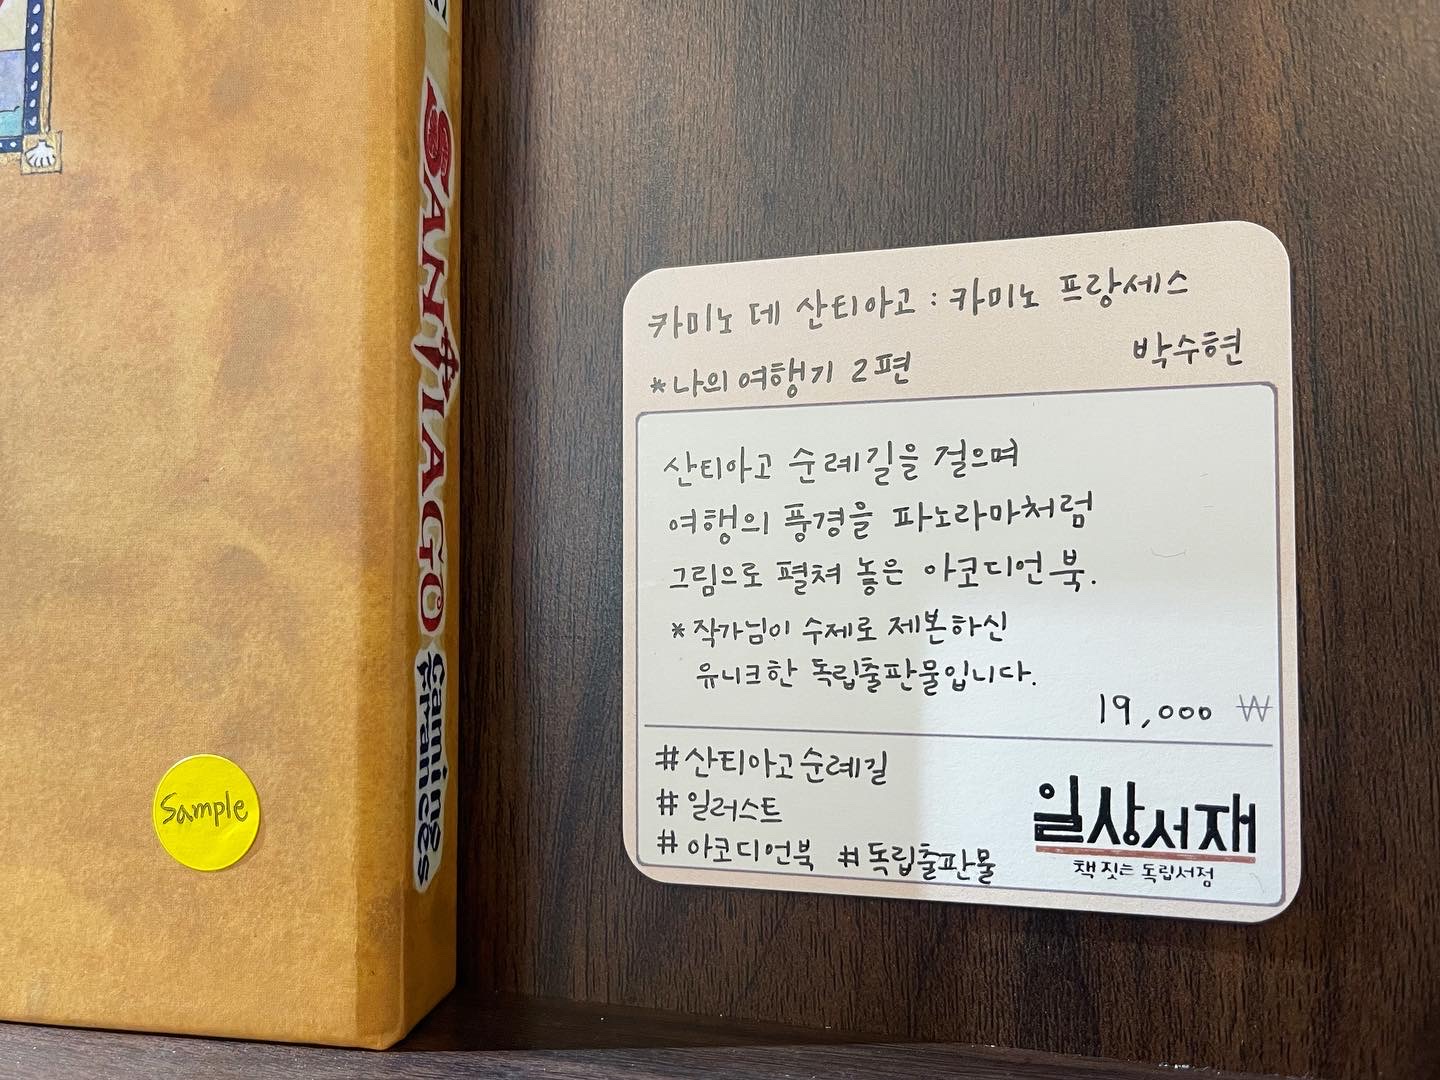 SANTIAGO
camino
Frances
Sample
카미노 데 산티아고 : 카미노 프랑세스
박수현
*나의 여행기 2편
산티아고 순례길을 걸으며
여행의 풍경을 파노라마처럼
그림으로 펼쳐 놓은 아코디언 북.
*작가님이 수제로 제본하신
유니크한 독립출판물입니다.
19,000 ₩
#산티아고순례길
#일러스트
#아코디언북 #독립출판물
일상서재
책 짓는 독립서점